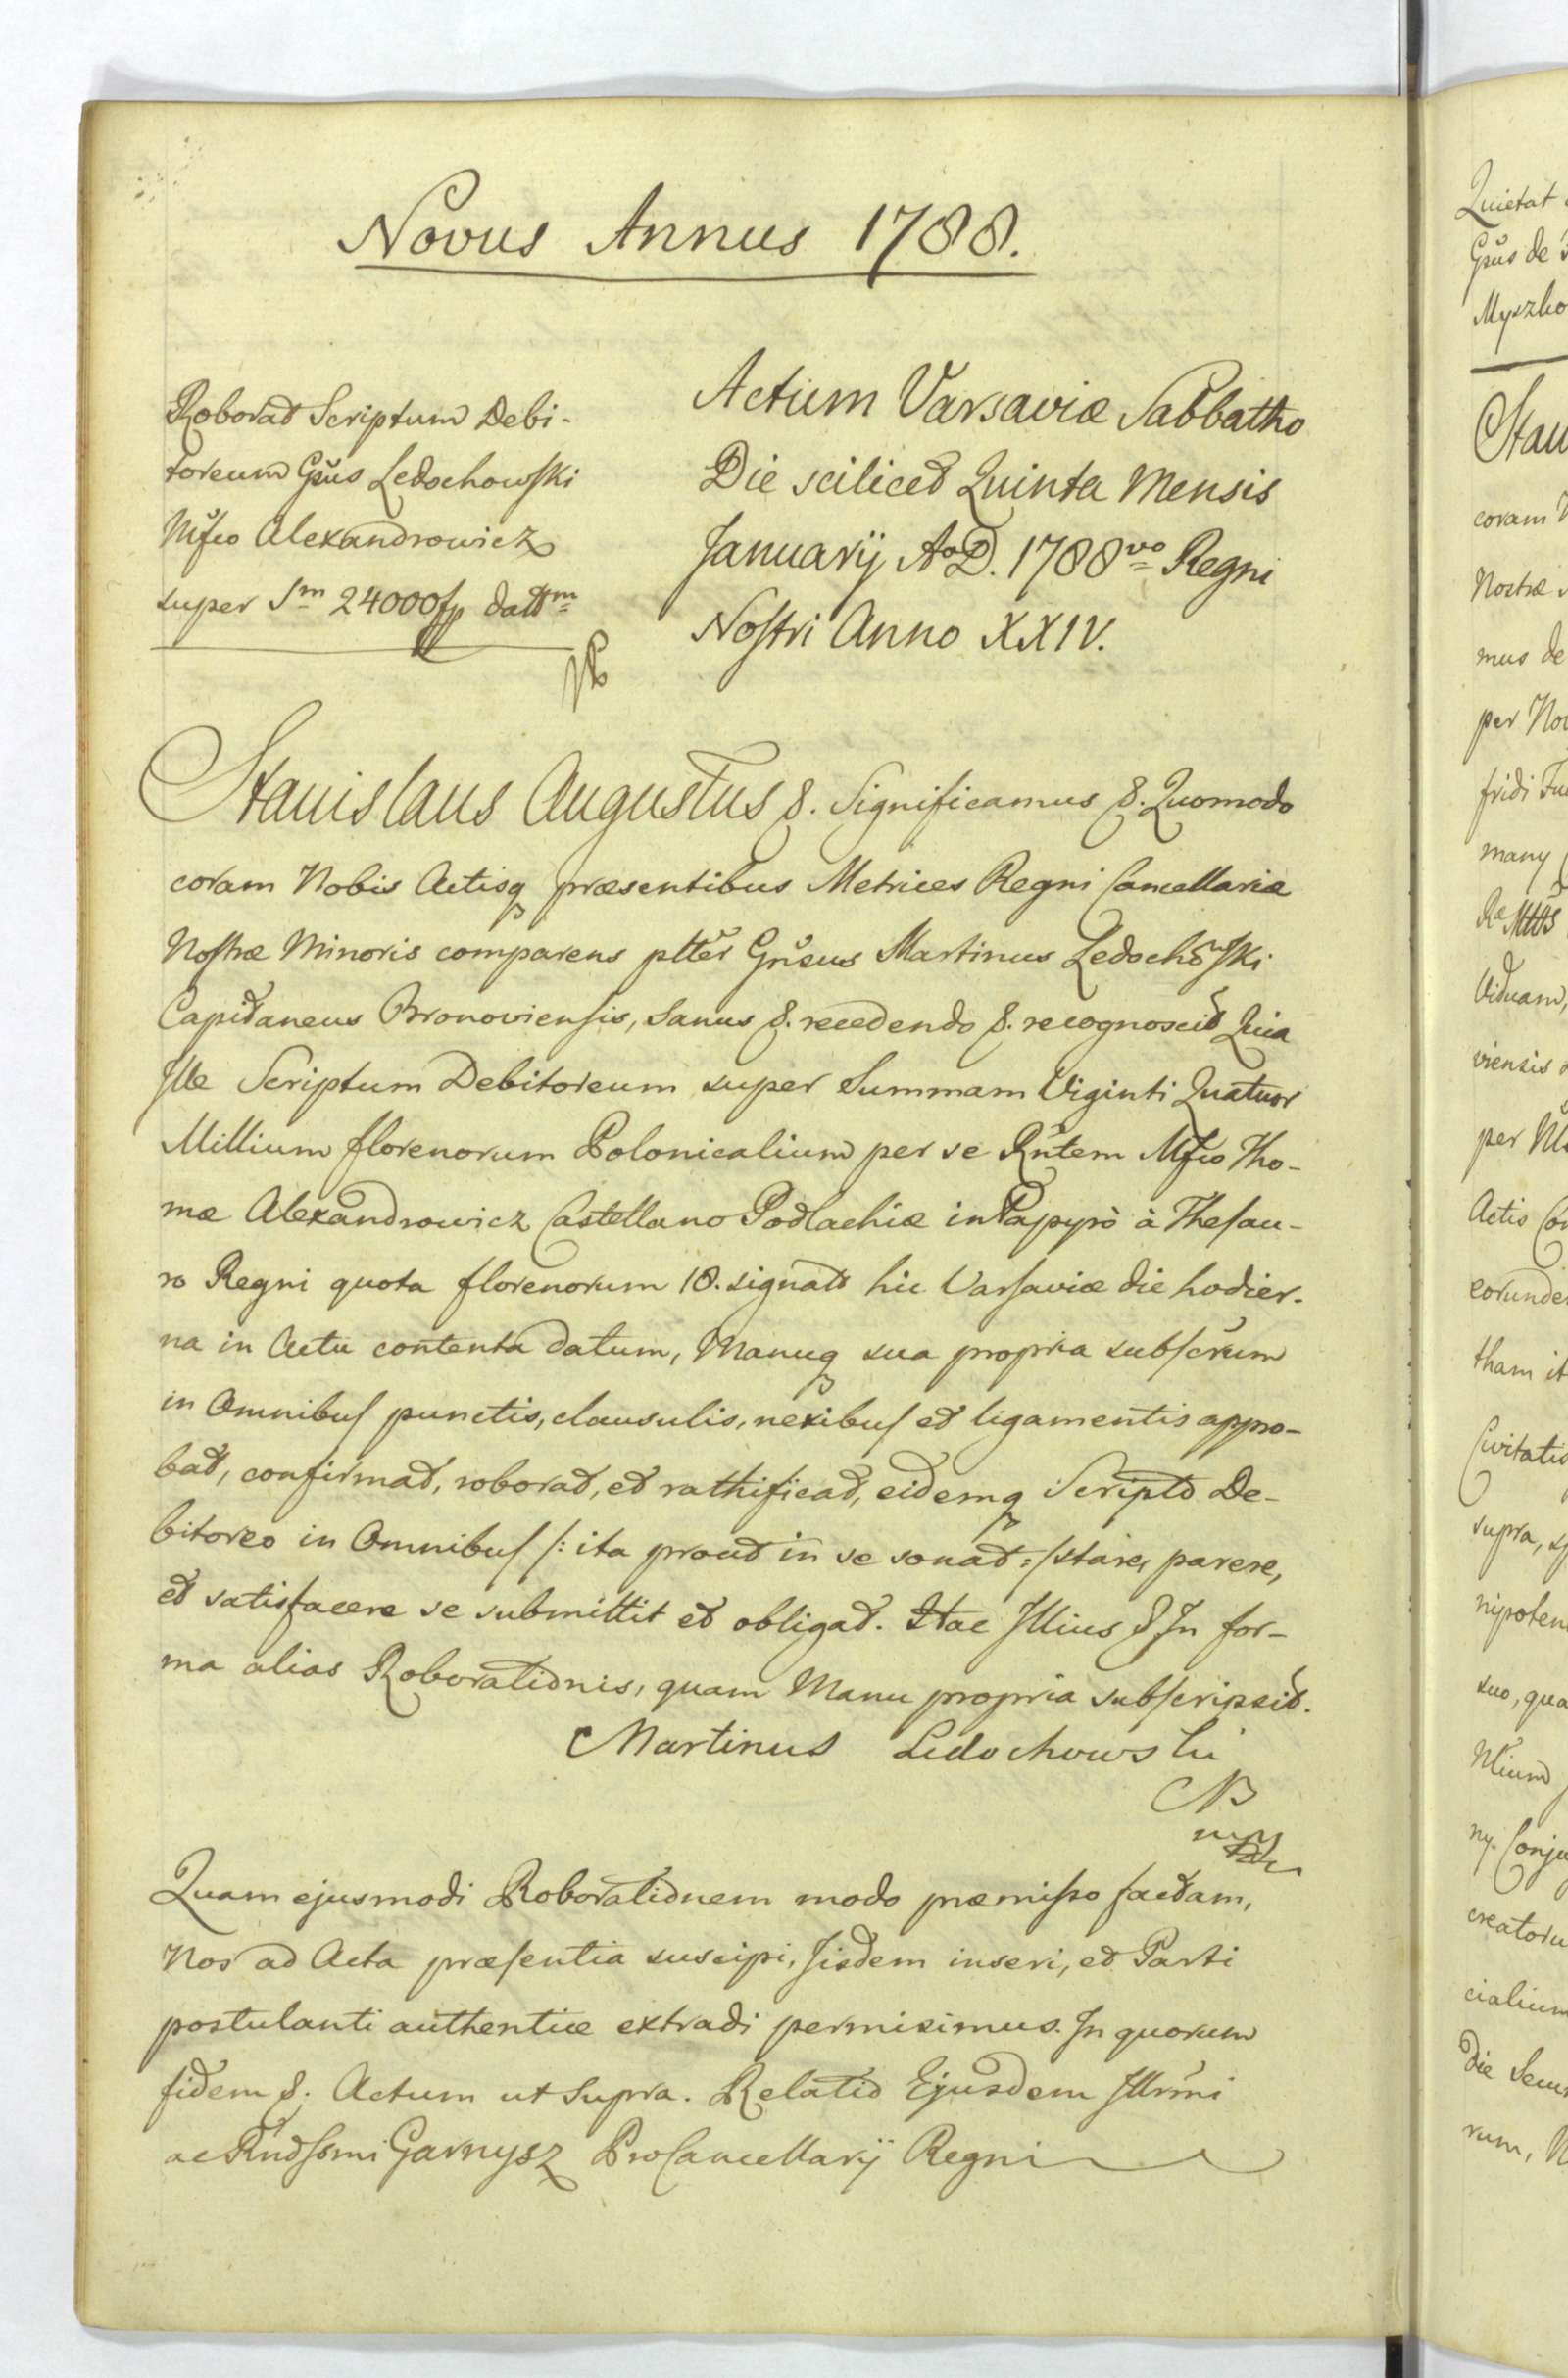 Novus Annus 1788.
Roborat Scriptum Debi-
toreum Gsus Ledochowski
Mfco Alexandrowicz
super Sm 24000 fp dattm
Actum Varsaviæ Sabbatho
Die scilicet Quinta Mensis
Januarij AoD. 1788vo Regni
Nostri Anno XXIV.
Stanislaus Augustus &. Significamus &. Quomodo
coram Nobis Actisq præsentibus Metrices Regni Cancellariæ
Nostræ Minoris comparens pltter Gnsus Martinus Ledochowski
Capitaneus Bronoviensis, sanus &. recedendo &. recognoscit Quia
Ille Scriptum Debitoreum super Summam Viginti Quatuor
Millium florenorum Polonicalium per se Rntem Mfco Tho-
mæ Alexandrowicz Castellano Podlachiæ in Papyrò à Thesau-
ro Regni quota florenorum 18. signato hic Varsaviæ die hodier-
na in Actu contenta datum, Manuq sua propria subscrum
in Omnibus punctis, clausulis, nexibus et ligamentis appro-
bat, confirmat, roborat, et rathificat, eidemq Scripto De-
bitoreo in Omnibus /: ita prout in se sonat :/ stare, parere,
et satisfacere se submittit et obligat. Hac Illius & In for-
ma alias Roborationis, quam Manu propria subscripsit.
Martinus Ledochowski
Quam ejusmodi Roborationem modo præmisso factam,
Nos ad Acta præsentia suscipi, Iisdem inseri, et Parti
postulanti authentice extradi permisimus. In quorum
fidem &. Actum ut supra. Relatio Ejusdem Illrmi
ac Rndssmi Garnysz ProCancellarij Regni
Quietat
Gsus de
Myszko
Stan
coram
Nostræ
mus de
per Nob
fridi
many
Viduam,
viensis
per
Actis
eorunde
tham it
Civitatis
supra,
nipoten
suo, qua
ny. Conju
creatoru
cialium
die
rum,